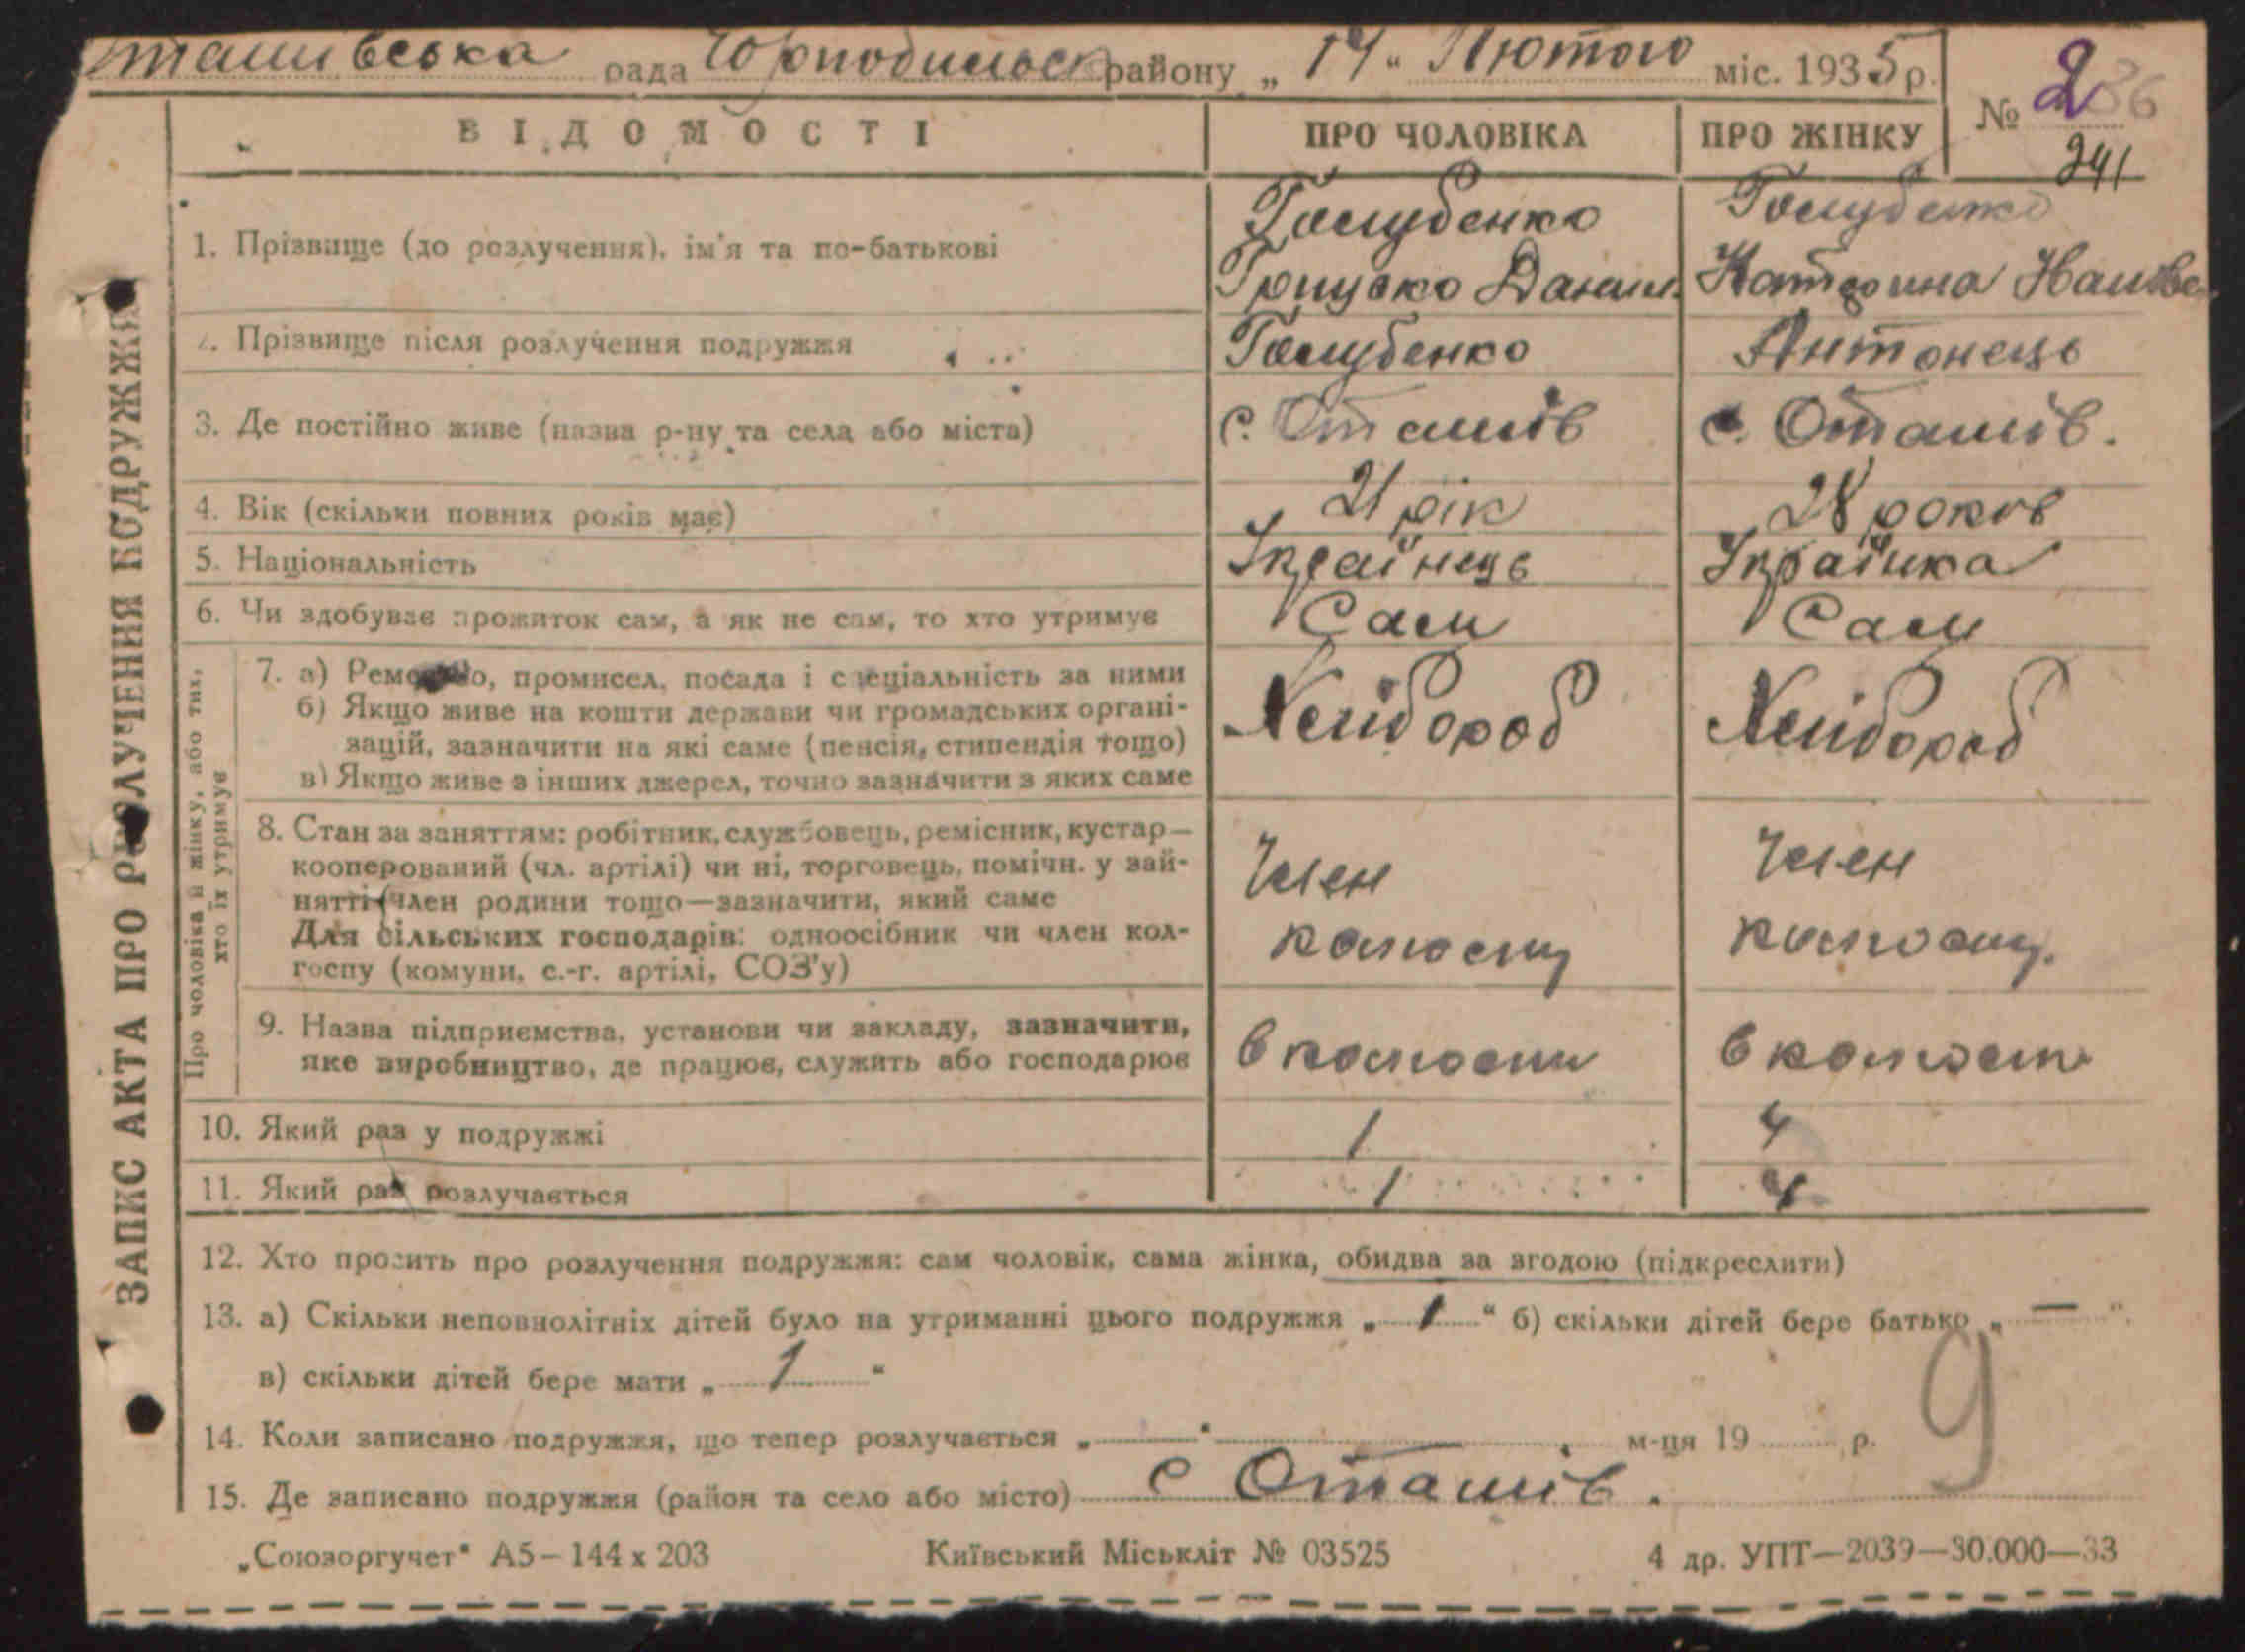 Оташівська рада Чорнобильськ району „ 14 " Лютого міс. 1935 р.
№ 2 86
241
ВІДОМОСТІ ПРО ЧОЛОВІКА ПРО ЖІНКУ
1. Прізвище (до розлучення), ім'я та по-батькові Голубенко Голубенко
Данил. Катерина
2. Прізвище після розлучення подружжя Голубенко Антонець
3. Де постійно живе (назва р-ну та села або міста) с. Оташів с. Оташів.
4. Вік (скільки повних років має) 21 рік 28 років
5. Національність Українець Українка
6. Чи здобуває прожиток сам, а як не сам, то хто утримує Сам Сам
Про чоловіка й жінку, або тих,
хто їх утримує
7. а) Ремесло, промисел, посада і спеціальність за ними
б) Якщо живе на кошти держави чи громадських органі-
зацій, зазначити на які саме (пенсія, стипендія тощо) Хлібороб Хлібороб
в) Якщо живе з інших джерел, точно зазначити з яких саме
8. Стан за заняттям: робітник, службовець, ремісник, кустар—
кооперований (чл. артілі) чи ні, торговець, помічн. у зай-
нятті (член родини тощо—зазначити, який саме Член Член
Для сільських господарів: одноосібник чи член кол-
госпу (комуни, с.-г. артілі, СОЗ'у) колгоспу колгоспу.
9. Назва підприємства, установи чи закладу, зазначити,
яке виробництво, де працює, служить або господарює в колгоспи в колгоспи
10. Який раз у подружжі 1 4
11. Який раз розлучається 1 4
12. Хто просить про розлучення подружжя: сам чоловік, сама жінка, обидва за згодою (підкреслити)
13. а) Скільки неповнолітніх дітей було на утриманні цього подружжя „ 1 " б) скільки дітей бере батько „ — "
в) скільки дітей бере мати „ 1 "
9
14. Коли записано подружжя, що тепер розлучається „ — " м-ця 19 р.
15. Де записано подружжя (район та село або місто) с Оташів.
„Союзоргучет" А5—144 х 203 Київський Міськліт № 03525 4 др. УПТ—2039—30.000—33
ЗАПИС АКТА ПРО РОЗЛУЧЕННЯ ПОДРУЖЖЯ